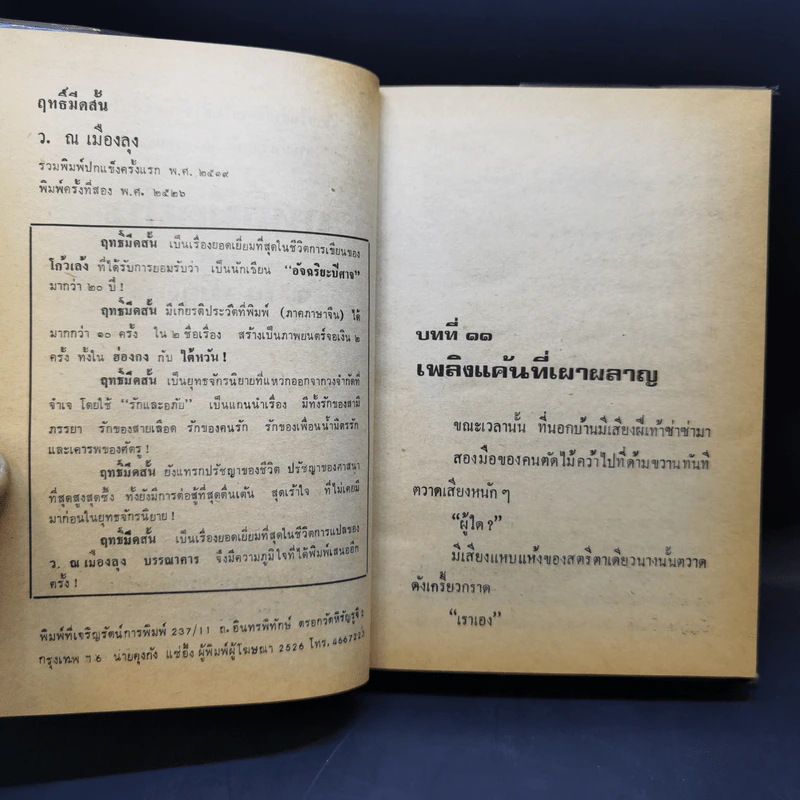 ฤทธิ์มีดสั้น
ว. ณ เมืองลุง
รวมพิมพ์ปกแข็งครั้งแรก พ.ศ. ๒๕๑๙
พิมพ์ครั้งที่สอง พ.ศ. ๒๕๒๖
ฤทธิ์มีดสั้น เป็นเรื่องยอดเยี่ยมที่สุดในชีวิตการเขียนของ
โก้วเล้ง ที่ได้รับการยอมรับว่า เป็นนักเขียน "อัจฉริยะปีศาจ"
มากว่า ๒๐ ปี!
ฤทธิ์มีดสั้น มีเกียรติประวัติที่พิมพ์ (ภาคภาษาจีน) ได้
มากกว่า ๑๐ ครั้ง ใน ๒ ชื่อเรื่อง สร้างเป็นภาพยนตร์จอเงิน ๒
ครั้ง ทั้งใน ฮ่องกง กับ ใต้หวัน!
ฤทธิ์มีดสั้น เป็นยุทธจักรนิยายที่แหวกออกจากวงจำกัดที่
จำเจ โดยใช้ "รักและอภัย" เป็นแกนนำเรื่อง มีทั้งรักของสามี
ภรรยา รักของสายเลือด รักของคนรัก รักของเพื่อนน้ำมิตรรัก
และเคารพของศัตรู!
ฤทธิ์มีดสั้น ยังแทรกปรัชญาของชีวิต ปรัชญาของศาสนา
ที่สุดสูงสุดซึ้ง ทั้งยังมีการต่อสู้ที่สุดตื่นเต้น สุดเร้าใจ ที่ไม่เคยมี
มาก่อนในยุทธจักรนิยาย!
ฤทธิ์มีดสั้น เป็นเรื่องยอดเยี่ยมที่สุดในชีวิตการแปลของ
ว. ณ เมืองลุง บรรณาคาร จึงมีความภูมิใจที่ได้พิมพ์เสนออีก
ครั้ง!
พิมพ์ที่เจริญรัตน์การพิมพ์ 237/11 ถ.อินทรพิทักษ์ ตรอกวัดหิรัญรูจี
กรุงเทพ ฯ 6 นายคุงกัง แซ่อึ้ง ผู้พิมพ์ผู้โฆษณา 2526 โทร.
บทที่ ๑๑
เพลิงแค้นที่เผาผลาญ
ขณะเวลานั้น ที่นอกบ้านมีเสียงฝีเท้าซ่าซ่ามา
สองมือของคนตัดไม้คว้าไปที่ด้ามขวานทันที
ตวาดเสียงหนักๆ
"ผู้ใด?"
มีเสียงแหบแห้งของสตรีตาเดียวนางนั้นตวาด
ดังเกรี้ยวกราด
"เราเอง"